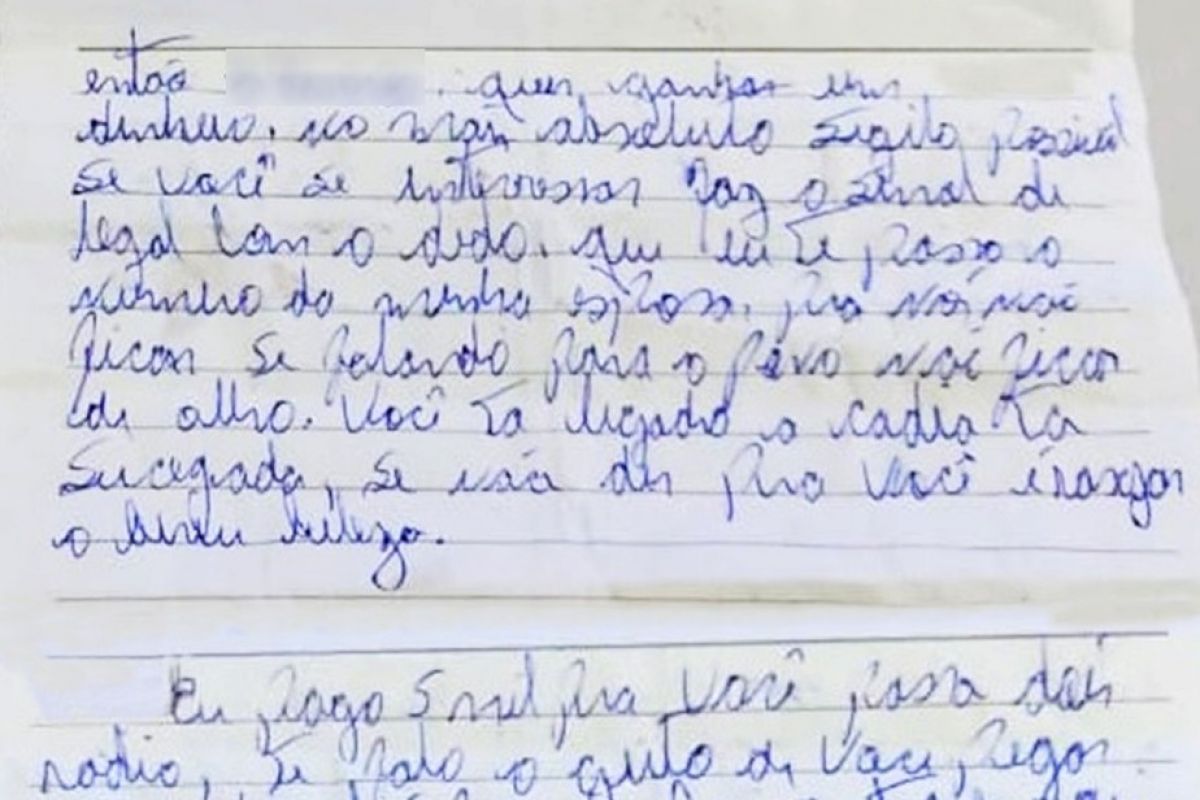 então quer ganhar um
dinheiro. no mair absoluto sigilo possivel
se você se interessar faz o sinal de
legal com o dedo. que eu te passo o
numero da minha esposa. pra nói não
ficar se falando para o povo não ficar
de olho. Você ta ligado a cadia ta
sucegada, se não der pra você
o bereu beleza.
Eu pago 5 mil pra você passa dois
radio, te falo o geito de você pegar